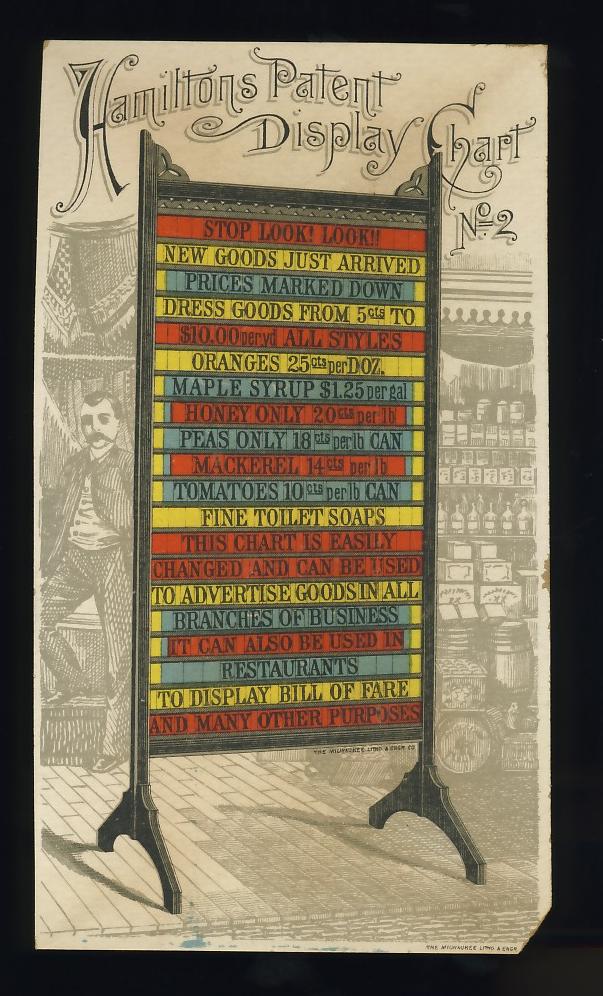 Hamiltons Patent
Display Chart
No. 2
STOP LOOK! LOOK!!
NEW GOODS JUST ARRIVED
PRICES MARKED DOWN
DRESS GOODS FROM 5cts TO
$10.00 per yd ALL STYLES
ORANGES 25cts per DOZ.
MAPLE SYRUP $1.25 per gal
HONEY ONLY 20cts per lb
PEAS ONLY 18cts per lb CAN
MACKEREL 14cts per lb
TOMATOES 10cts per lb CAN
FINE TOILET SOAPS
THIS CHART IS EASILY
CHANGED AND CAN BE USED
TO ADVERTISE GOODS IN ALL
BRANCHES OF BUSINESS
IT CAN ALSO BE USED IN
RESTAURANTS
TO DISPLAY BILL OF FARE
AND MANY OTHER PURPOSES
THE MILWAUKEE LITHO. & ENGR. CO.
THE MILWAUKEE LITHO. & ENGR.